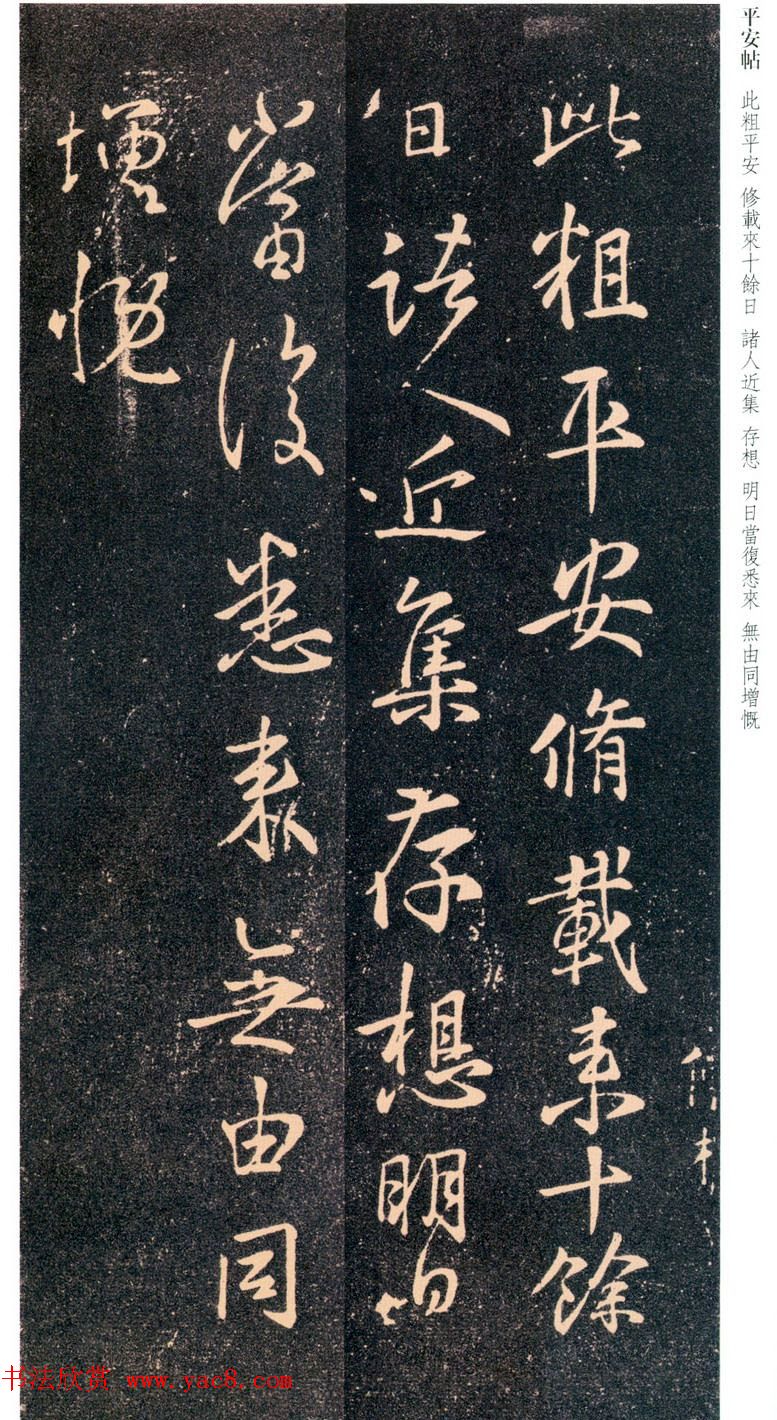 平安帖 此粗平安 修載來十餘日 諸人近集 存想 明日當復悉來 無由同增慨
此粗平安脩載来十餘
日諸人近集存想明日
當復悉来無由同
增慨
书法欣赏 www.yac8.com